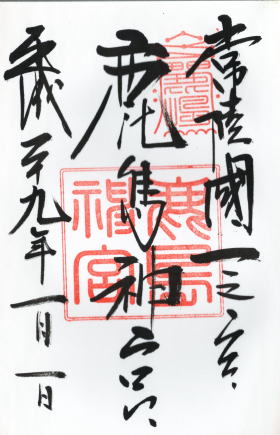 常陸國一之宮
鹿島神宮
平成二十九年一月一日
鹿島神宮